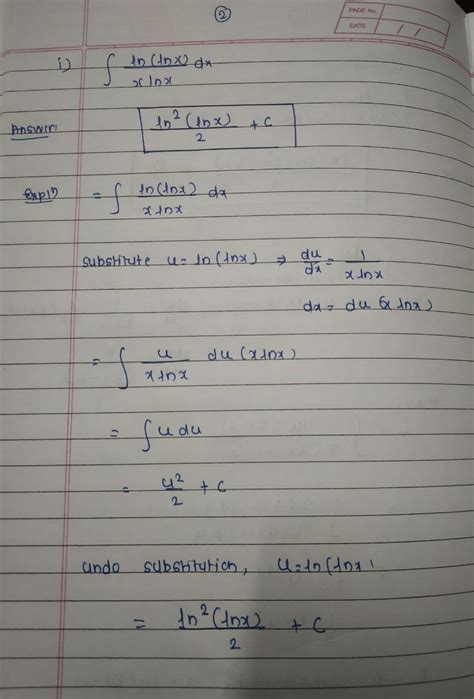 ②
PAGE No.
DATE / /
i) ∫ ln(lnx)/(x lnx) dx
Answer: ln²(lnx)/2 + c
Expln = ∫ ln(lnx)/(x lnx) dx
substitute u = ln(lnx) ⇒ du/dx = 1/(x lnx)
dx = du (x lnx)
= ∫ u/(x lnx) du (x lnx)
= ∫ u du
= u²/2 + c
undo substitution, u = ln(lnx)
= ln²(lnx)/2 + c